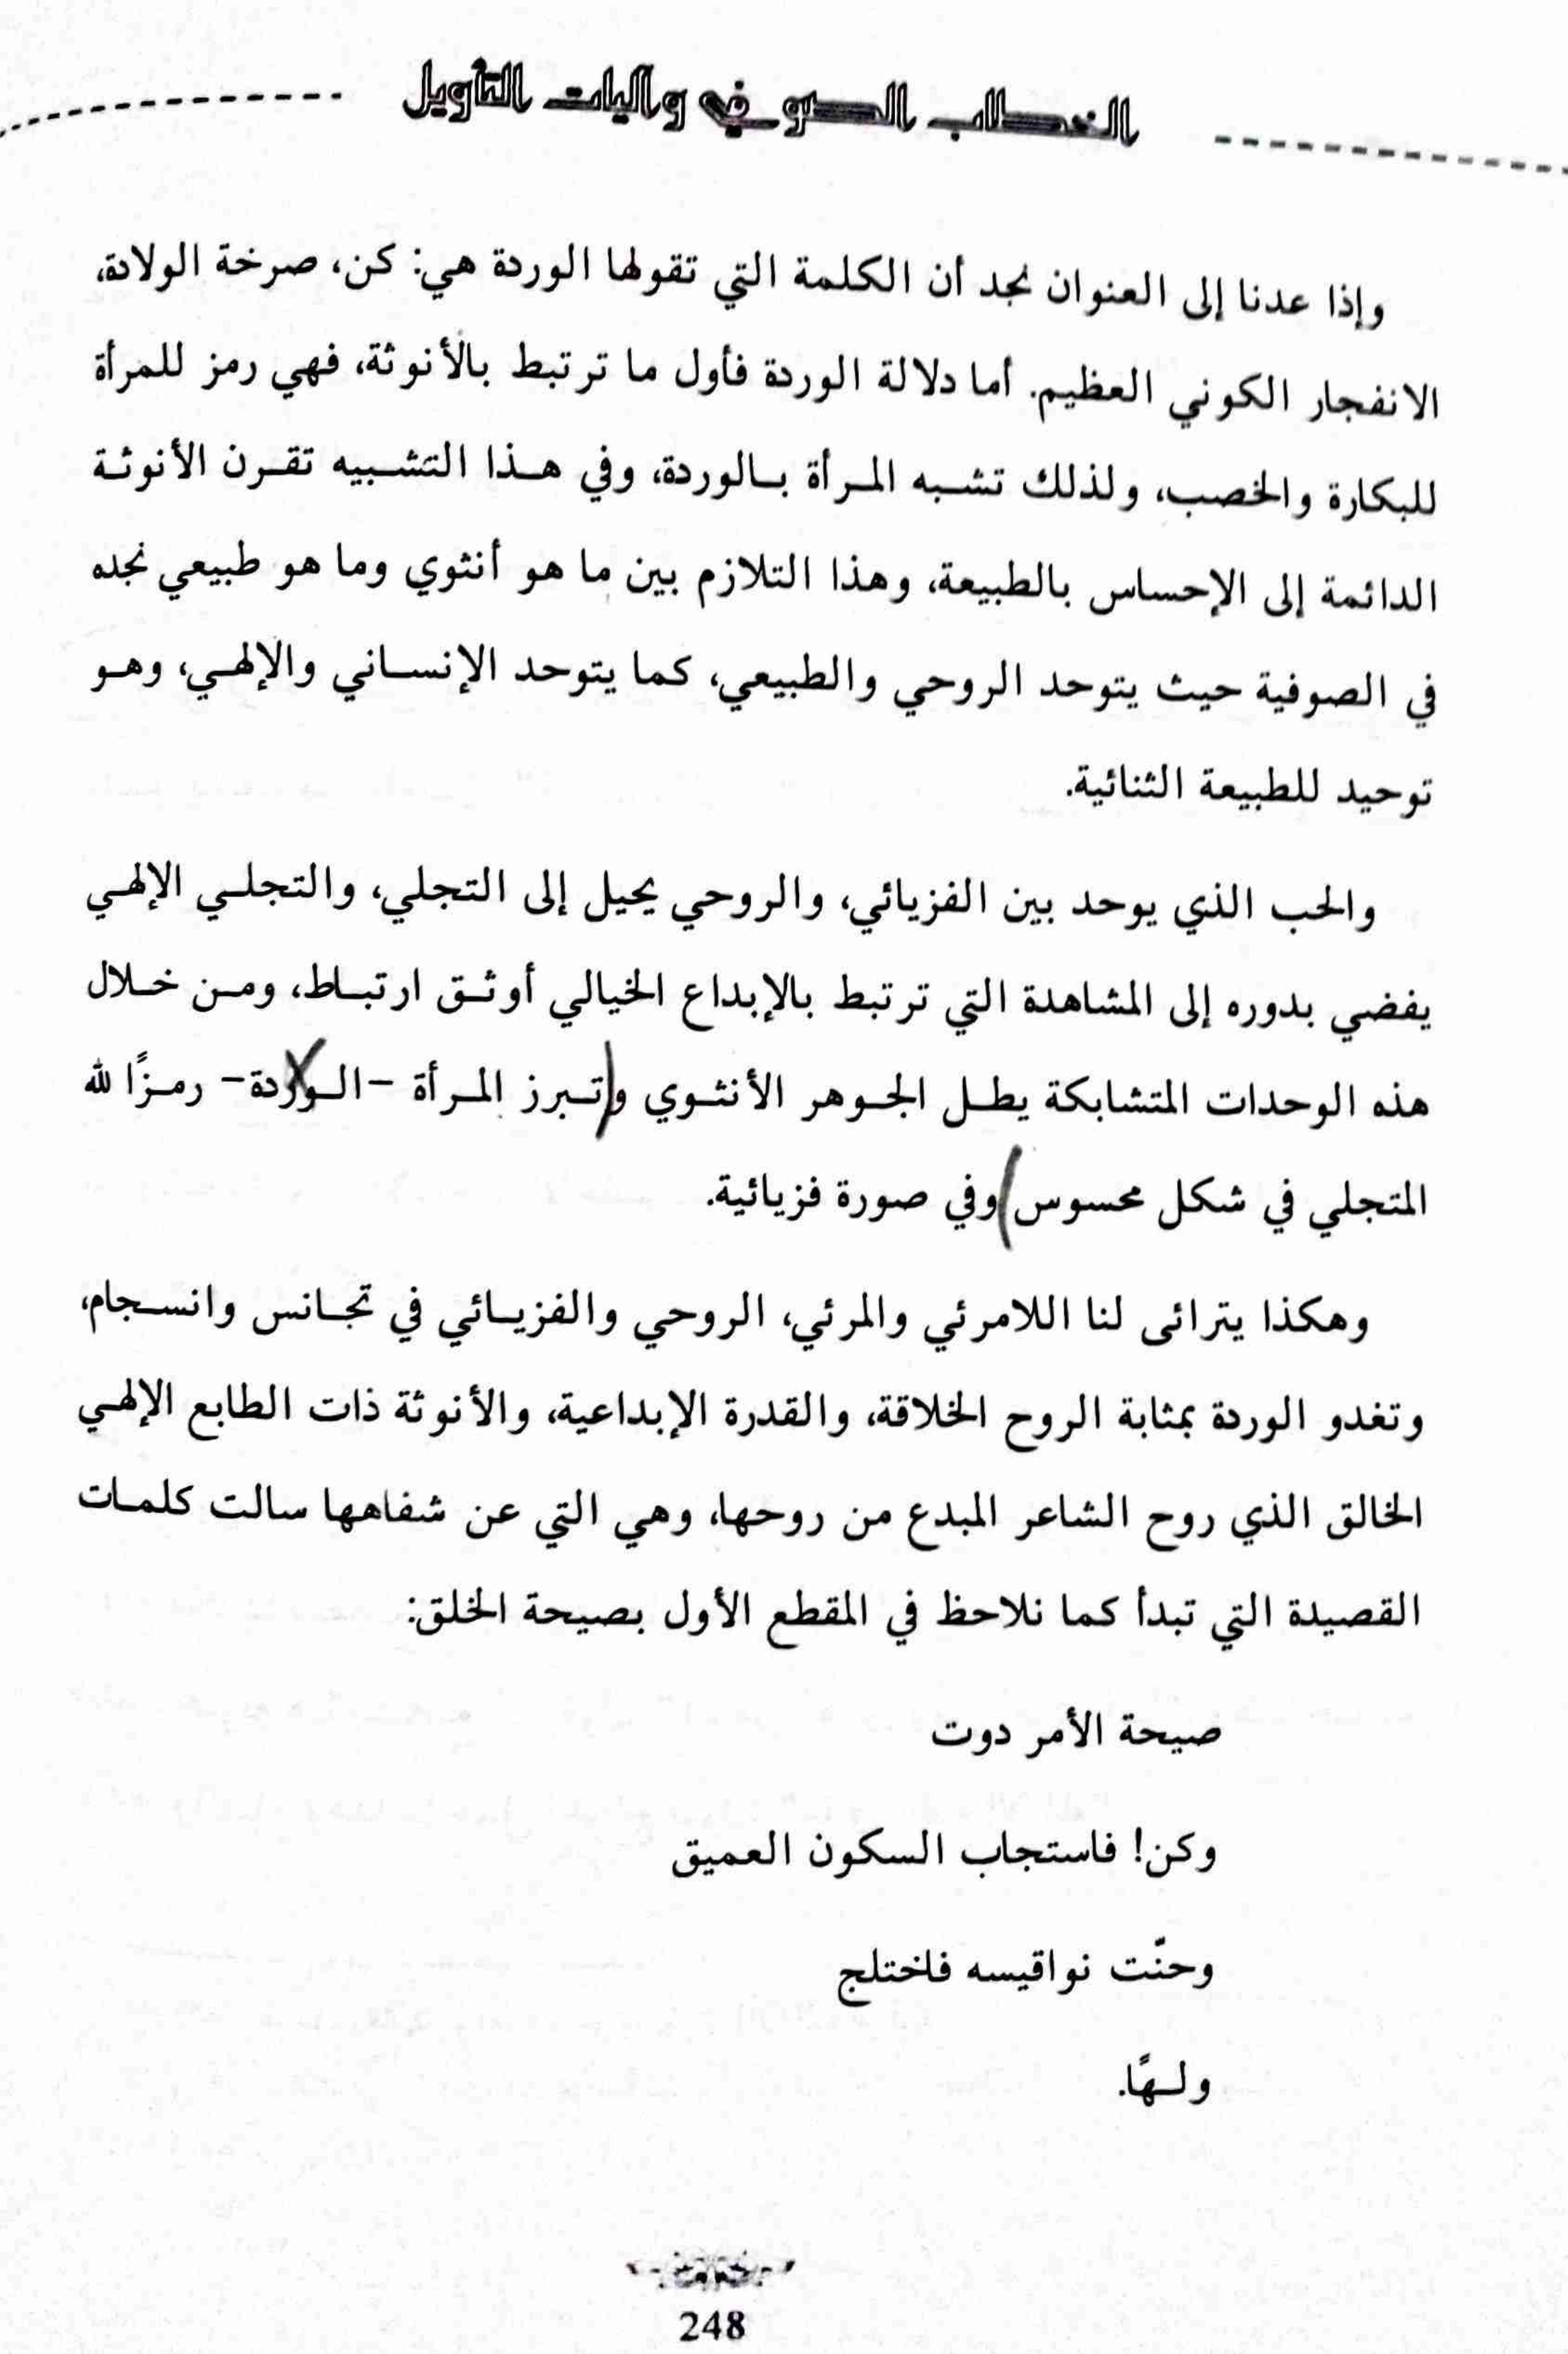 الخطاب الصوفي وآليات التأويل
وإذا عدنا إلى العنوان نجد أن الكلمة التي تقولها الوردة هي: كن، صرخة الولادة،
الانفجار الكوني العظيم. أما دلالة الوردة فأول ما ترتبط بالأنوثة، فهي رمز للمرأة
للبكارة والخصب، ولذلك تشبه المرأة بالوردة، وفي هذا التشبيه تقرن الأنوثة
الدائمة إلى الإحساس بالطبيعة، وهذا التلازم بين ما هو أنثوي وما هو طبيعي نجده
في الصوفية حيث يتوحد الروحي والطبيعي، كما يتوحد الإنساني والإلهي، وهو
توحيد للطبيعة الثنائية.
والحب الذي يوحد بين الفزيائي، والروحي يحيل إلى التجلي، والتجلي الإلهي
يفضي بدوره إلى المشاهدة التي ترتبط بالإبداع الخيالي أوثق ارتباط، ومن خلال
هذه الوحدات المتشابكة يطل الجوهر الأنثوي وتبرز المرأة -الوردة- رمزًا لله
المتجلي في شكل محسوس وفي صورة فزيائية.
وهكذا يترائى لنا اللامرئي والمرئي، الروحي والفزيائي في تجانس وانسجام،
وتغدو الوردة بمثابة الروح الخلاقة، والقدرة الإبداعية، والأنوثة ذات الطابع الإلهي
الخالق الذي روح الشاعر المبدع من روحها، وهي التي عن شفاهها سالت كلمات
القصيدة التي تبدأ كما نلاحظ في المقطع الأول بصيحة الخلق:
صيحة الأمر دوت
وكن! فاستجاب السكون العميق
وحنّت نواقيسه فاختلج
ولهًا.
248